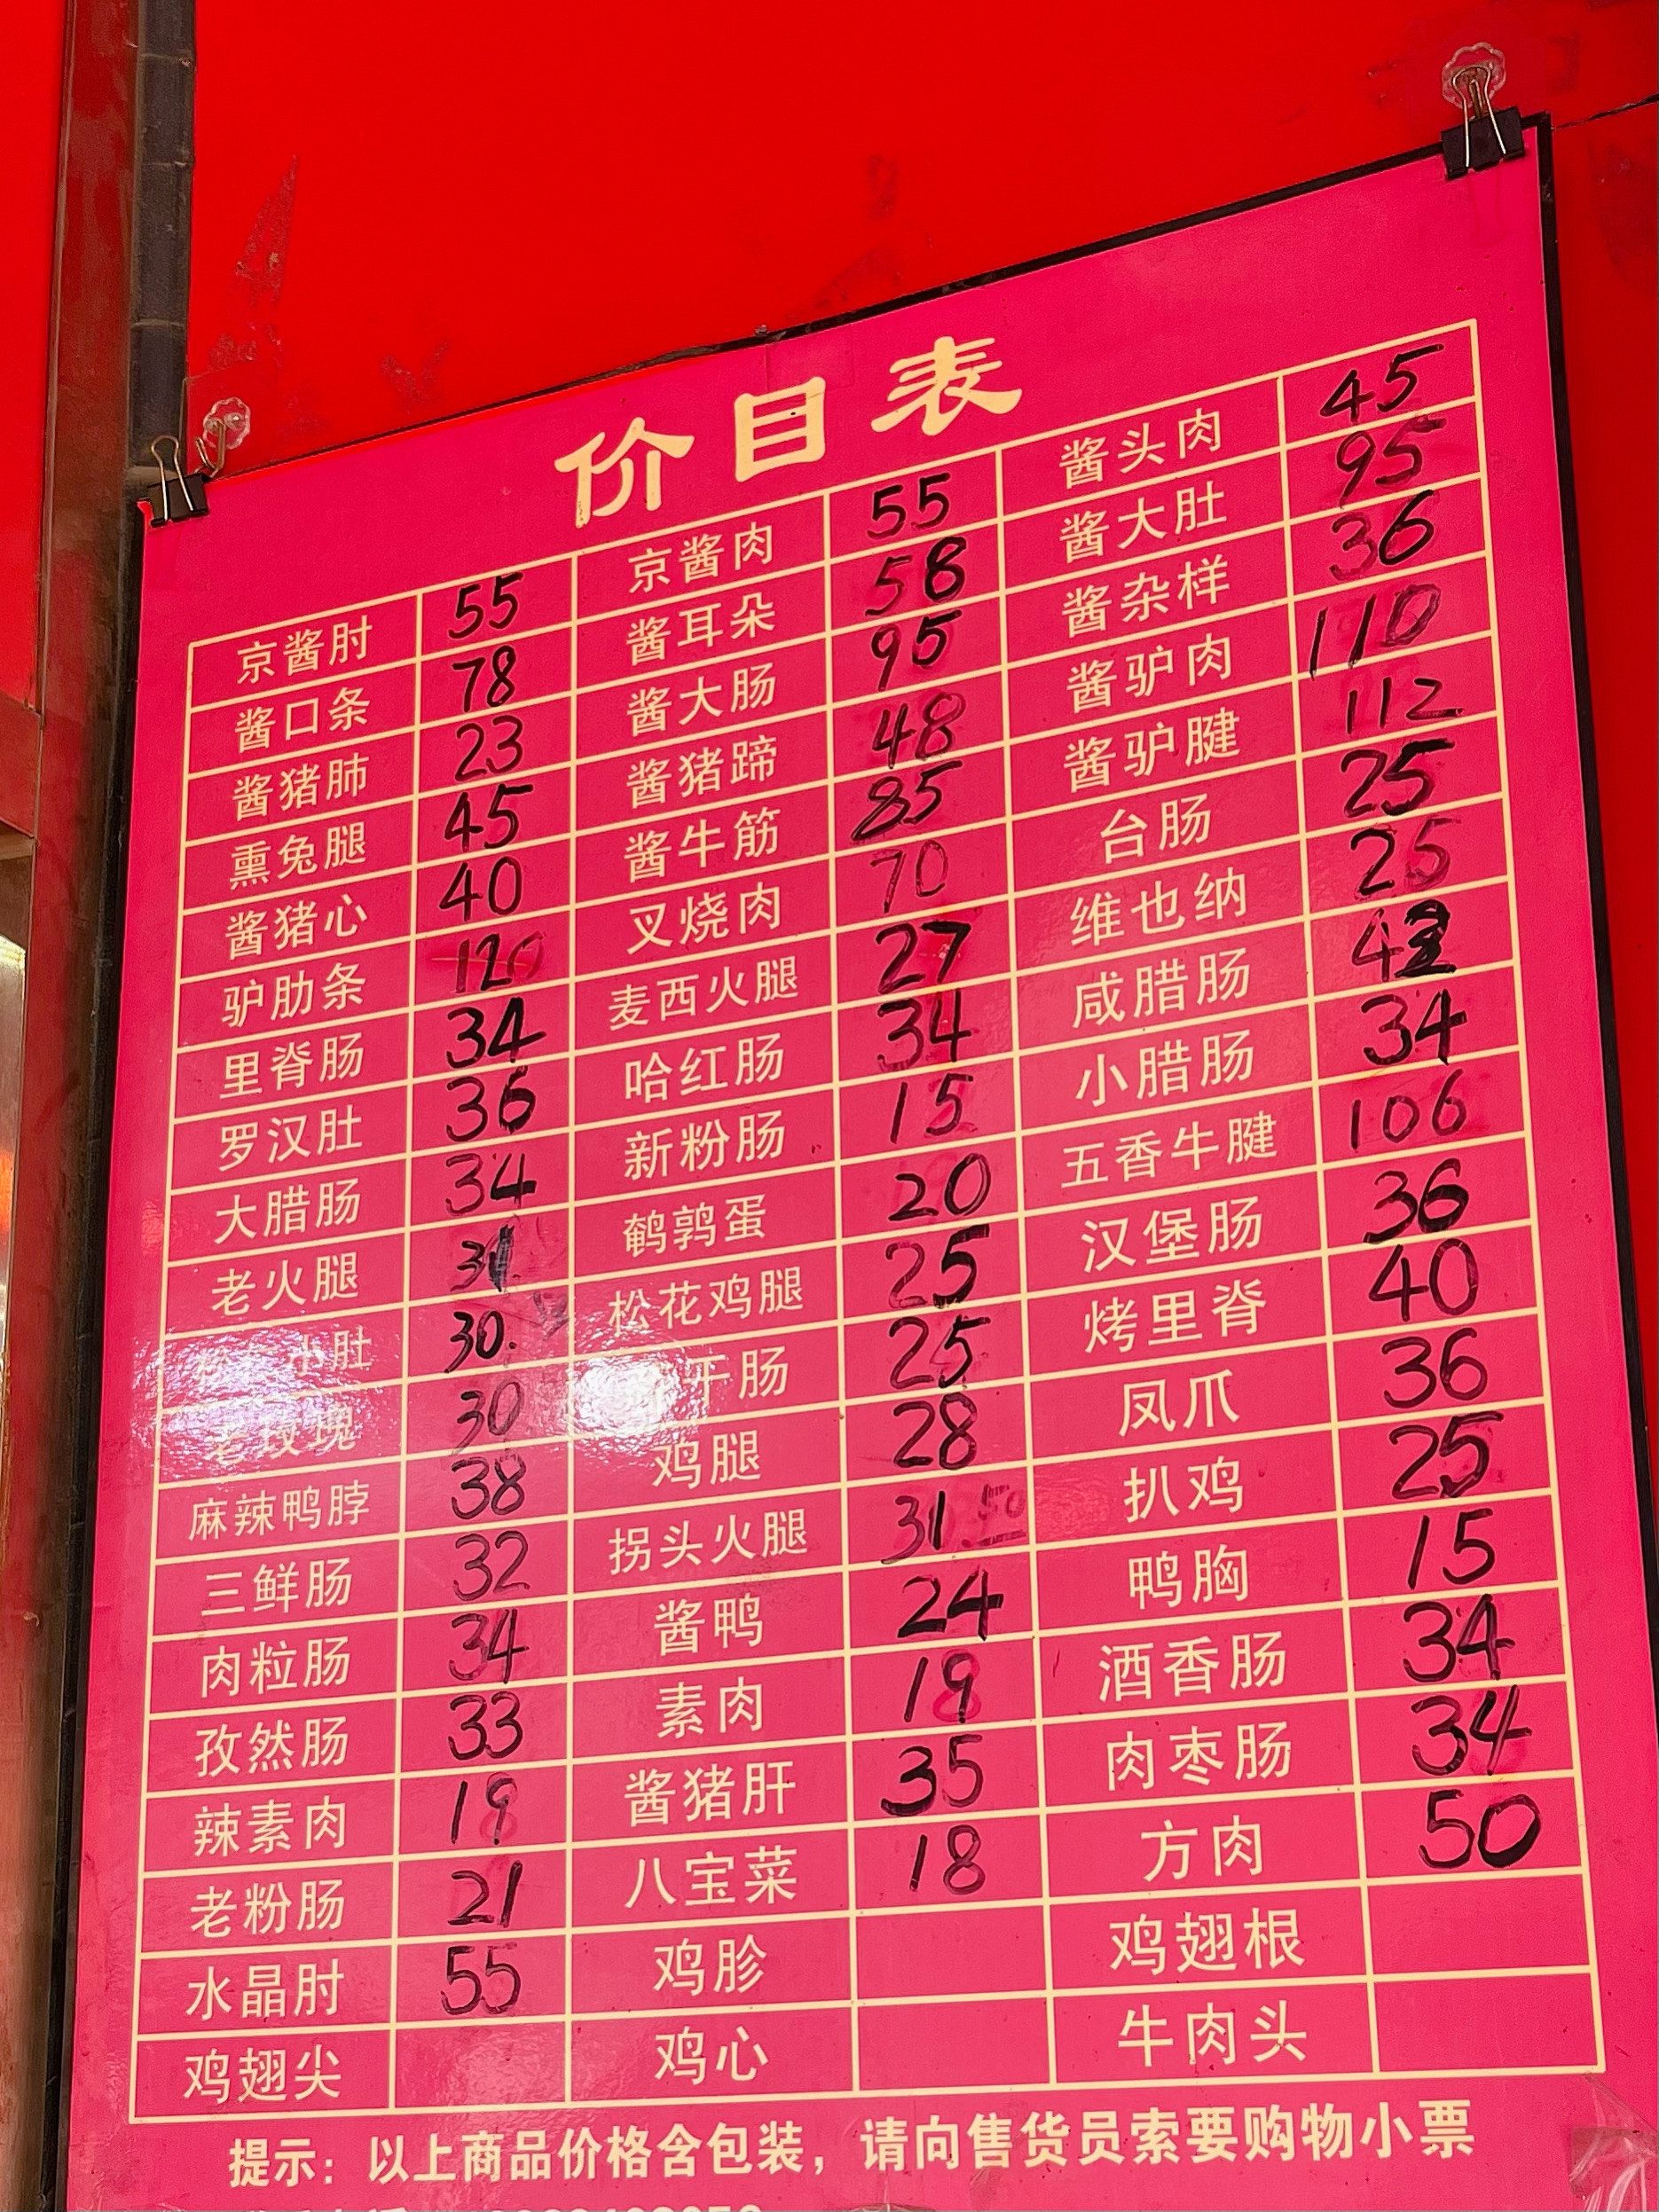 价目表
京酱肘 55 京酱肉 55 酱头肉 45
酱口条 78 酱耳朵 58 酱大肚 95
酱猪肺 23 酱大肠 95 酱杂样 36
熏兔腿 45 酱猪蹄 48 酱驴肉 110
酱猪心 40 酱牛筋 85 酱驴腱 112
驴肋条 120 叉烧肉 70 台肠 25
里脊肠 34 麦西火腿 27 维也纳 25
罗汉肚 36 哈红肠 34 咸腊肠
大腊肠 34 新粉肠 15 小腊肠 34
老火腿 31 鹌鹑蛋 20 五香牛腱 106
肚 30. 松花鸡腿 25 汉堡肠 36
玫瑰 30 干肠 25 烤里脊 40
麻辣鸭脖 38 鸡腿 28 凤爪 36
三鲜肠 32 拐头火腿 31 扒鸡 25
肉粒肠 34 酱鸭 24 鸭胸 15
孜然肠 33 素肉 19 酒香肠 34
辣素肉 19 酱猪肝 35 肉枣肠 34
老粉肠 21 八宝菜 18 方肉 50
水晶肘 55 鸡胗 鸡翅根
鸡翅尖 鸡心 牛肉头
提示：以上商品价格含包装，请向售货员索要购物小票